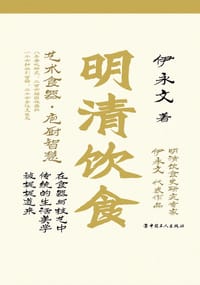 明清饮食
伊永文 著
艺术食器·庖厨智慧
明清饮食史研究专家
伊永文 代表作品
在食器与技艺中
传统的生活美学
被娓娓道来
中国工人出版社